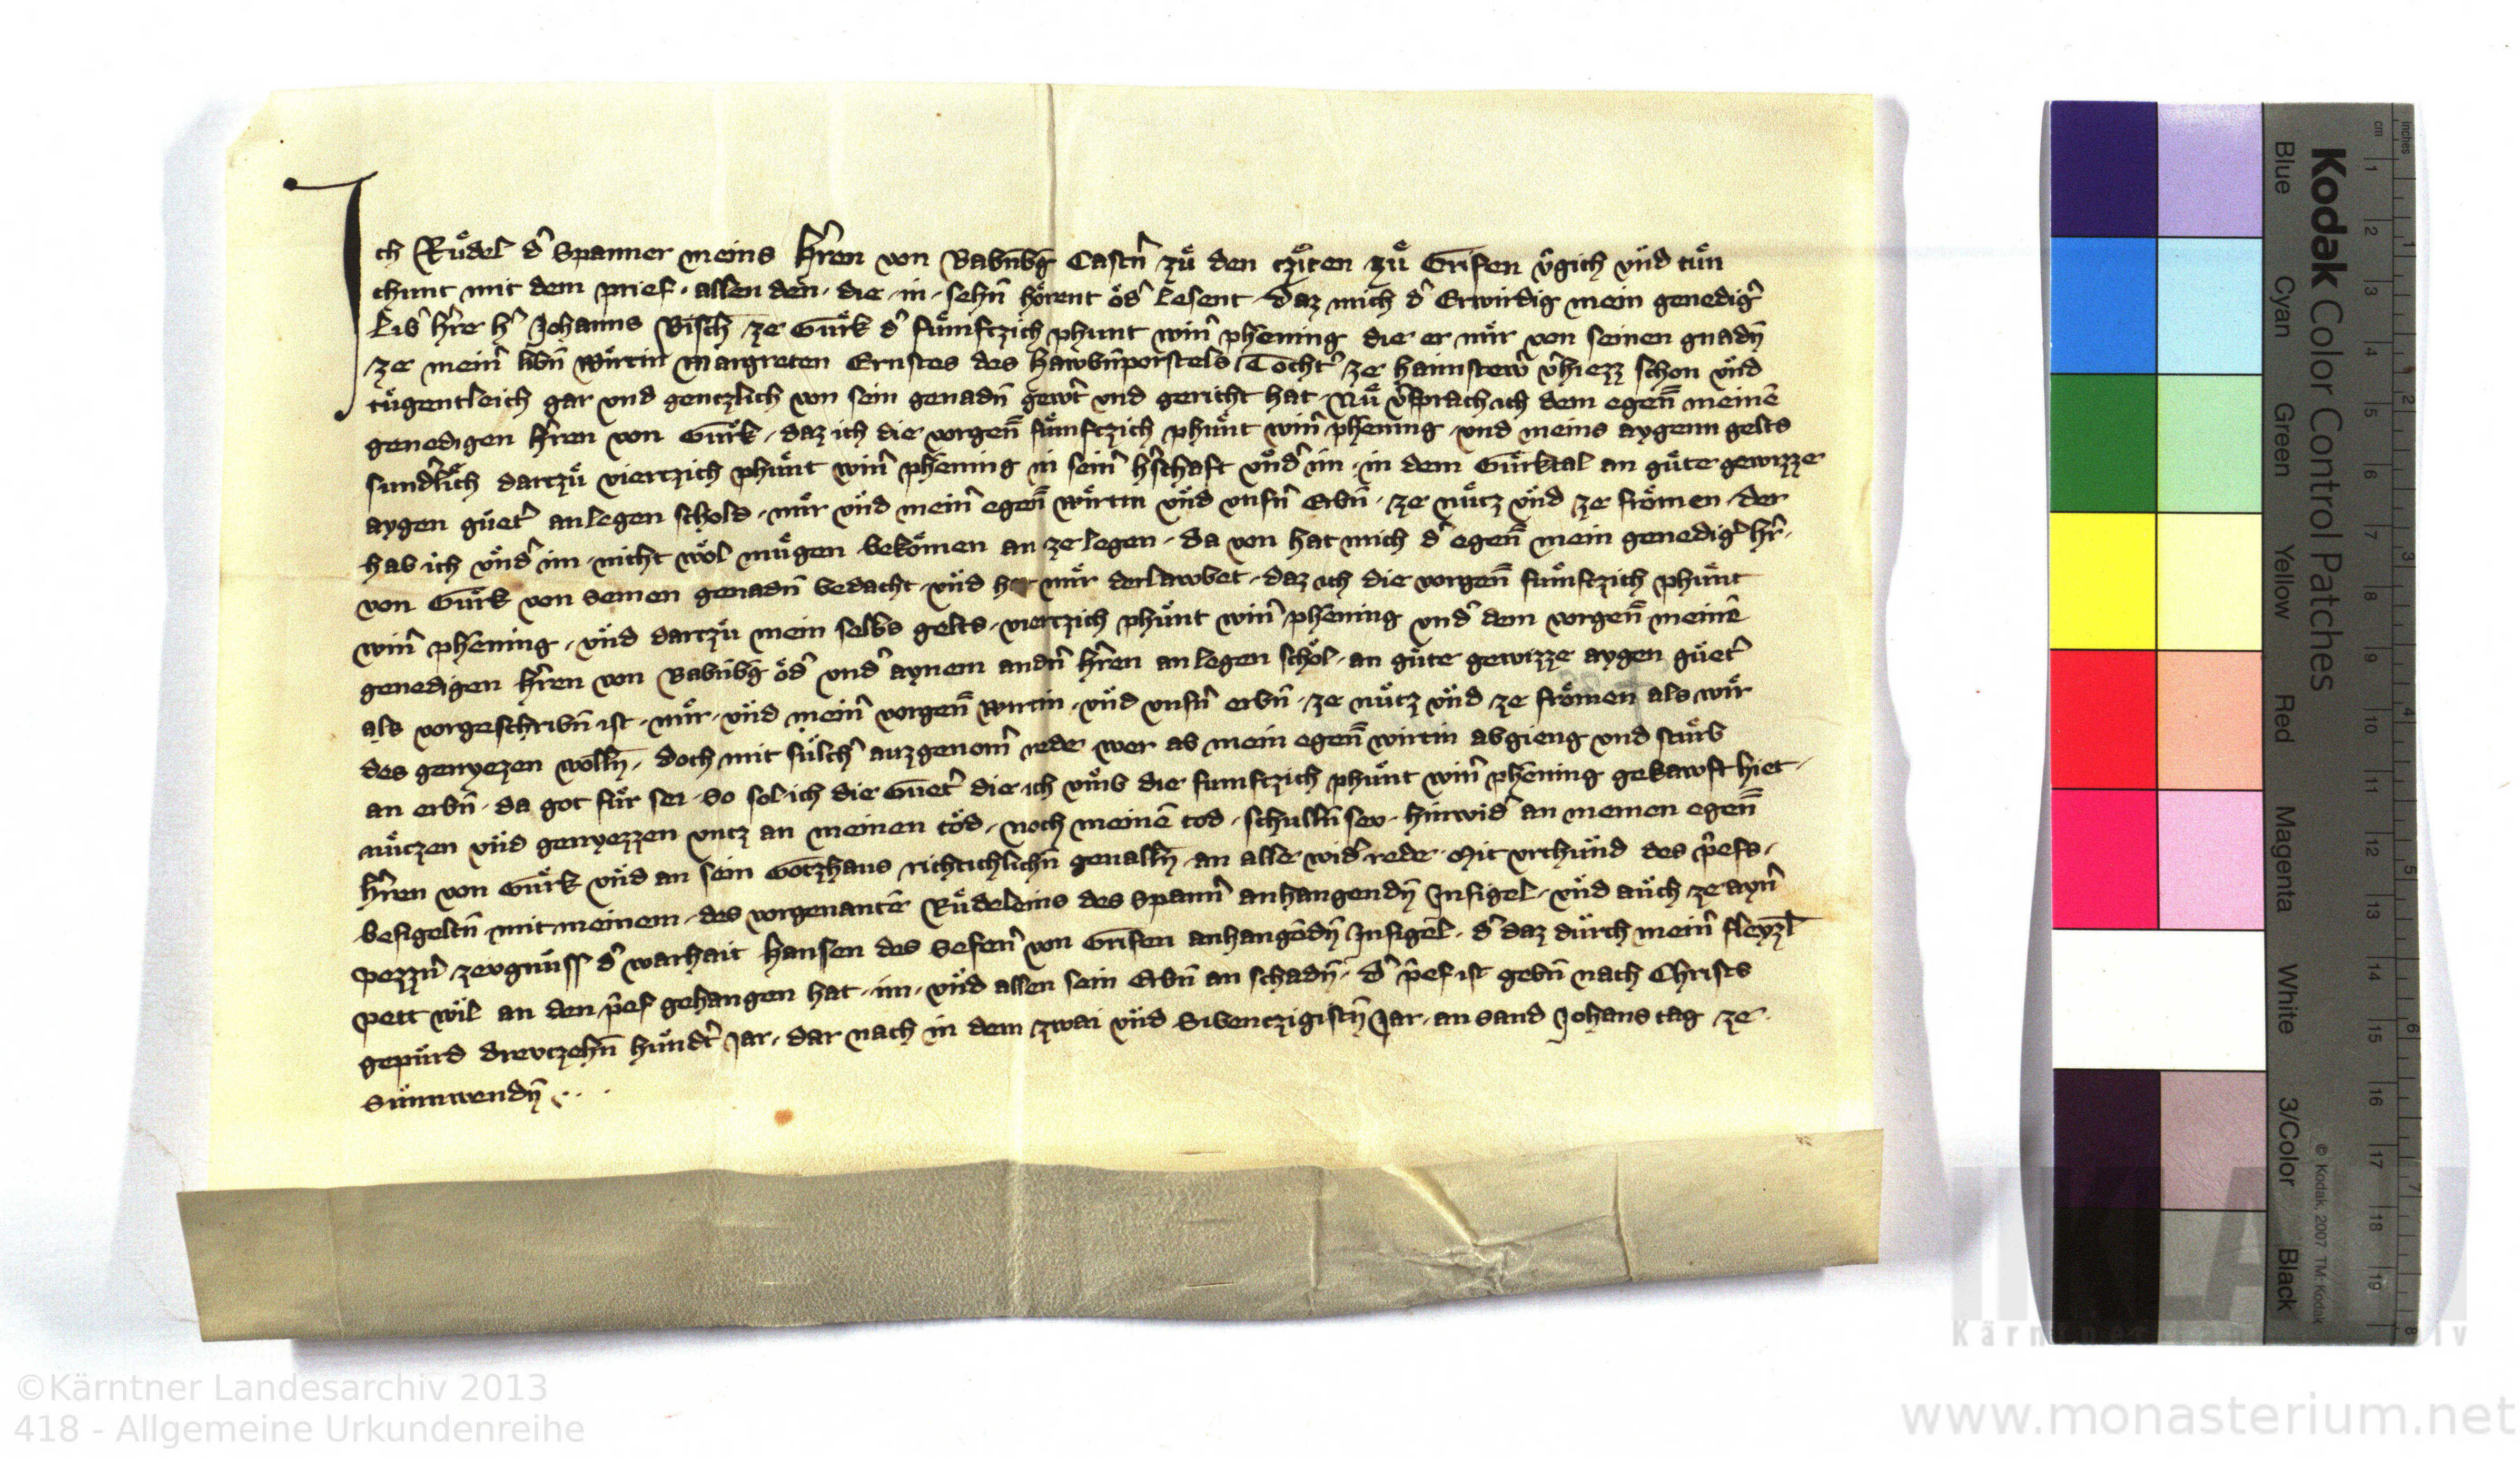 Ich Ruͤdel d̾ Spanner meins h̾ren von Babn̄b̾g Castn̾ zuͤ den czîten zuͤ Grifen v̾gich vnͤd tuͤn
chunt mit dem prief · allen den · die · in · sehn̄ hoͤrent oͤd̾ lesent · daz mich d̾ Erwirdig mein genedig̾
lib̾ h̾re h̾ Johanns Bisch̄ ze Guͤrk d̾ fuͤmftzich phunt win̾ phēning die er miͤr von seinen gnadn̄
ze mein̾ libn̄ wirtin margreten Ernstes des hawbn̄porstels Tocht̾ ze haimstew̾ v̾hiezz schon vnͤd
tuͤgentleich gar vnd genczlich von sein genadn̄ gew̾t vnd gericht hat · Nuͤ v̾sprach ich dem egen̄ meinē
genedigen h̾ren von Guͤrk · daz ich die vorgen̄ fuͤmftzich phuͤnt win̾ phēning vnd meins aygenn gelts
sund̾lich dartzuͤ viertzich phuͤnt win̾ phēning in sein̾ h̾schaft vnͤd̾ im · in dem Guͤrktal an guͤte gewizze
aygen guͤet̾ anlegen schold · miͤr vnͤd mein̾ egen̄ wiͤrtin vnͤd vnsn̾ erbn̄ · ze nuͤtz vnͤd ze froͤmen · der
hab ich vnͤd̾ im · nicht woͤl muͤgen bekoͤmen an ze legen · da von hat mich d̾ egen̄ mein genedig̾ h̾r ·
von Guͤrk von seinen genadn̄ bedacht · vnͤd hat miͤr derlawbet · daz ich die vorgen̄ fuͤmftzich phuͤnt
win̾ phēning · vnͤd dartzuͤ mein selbs gelts · viertzich phuͤnt win̾ phēning vnd̾ dem vorgen̄ meinē
genedigen h̾ren von Babn̄b̾g oͤd̾ vnd̾ aynem andn̾ h̾ren an legen schoͤl · an guͤte gewizze aygen guͤet̾
als vorgeschribn̄ ist · miͤr · vnͤd mein̾ vorgen̄ wirtin · vnͤd vnsn̾ erbn̄ · ze nuͤtz vnͤd ze froͤmen als wiͤr
des genyezen wolln̄ · doch mit suͤlch̾ auzgenom̾ rede wer ab mein egen̄ wirtin abgieng vnd stuͤrb
an erbn̄ · da got fuͤr sei · So sol ich die Guet̾ die ich vmͤb die fumftzich phuͤnt win̾ phēning gekawft hiet ·
nuͤczen vnͤd genyezzen vntz an meinen toͤd · noch meinē tod · schulln̄ sev · hinwid̾ an meinen egen̄
h̾ren von Guͤrk vnͤd an sein Gotzhaus richtichlichn̄ geualln̄ an alle wid̾rede · Mit vrchuͤnd des p̾efs ·
besigeltn̄ mit meinem · des vorgenantē Ruͤdeleins des Spann̾ anhangendn̄ Insigel · vnͤd auͤch ze ayn̾
pezzn̾ zevgnuͤss d̾ warhait hansen des Sefen̾ von Grifen anhangēdn̄ Insigel · d̾ daz duͤrch mein̾ fleyzl̄
pett wil an den p̾ef gehangen hat · im · vnͤd allen sein Erbn̄ an schadn̄ · d̾ p̾ef ist gebn̄ nach Christs
gepuͤrd drevtzehn̄ huͤndt̾ Jar · dar nach in dem zwai vnͤd Sibentzigistn̄ Jar · an sand Johans tag ze
Suͤnnwendn̄ · . .
Kodak Color Control Patches
Blue
Cyan
Green
Yellow
Red
Magenta
White
3/Color
Black
© Kodak, 2007 TM: Kodak
cm 1 2 3 4 5 6 7 8 9 10 11 12 13 14 15 16 17 18 19
inches 1 2 3 4 5 6 7 8
©Kärntner Landesarchiv 2013
418 - Allgemeine Urkundenreihe
www.monasterium.net